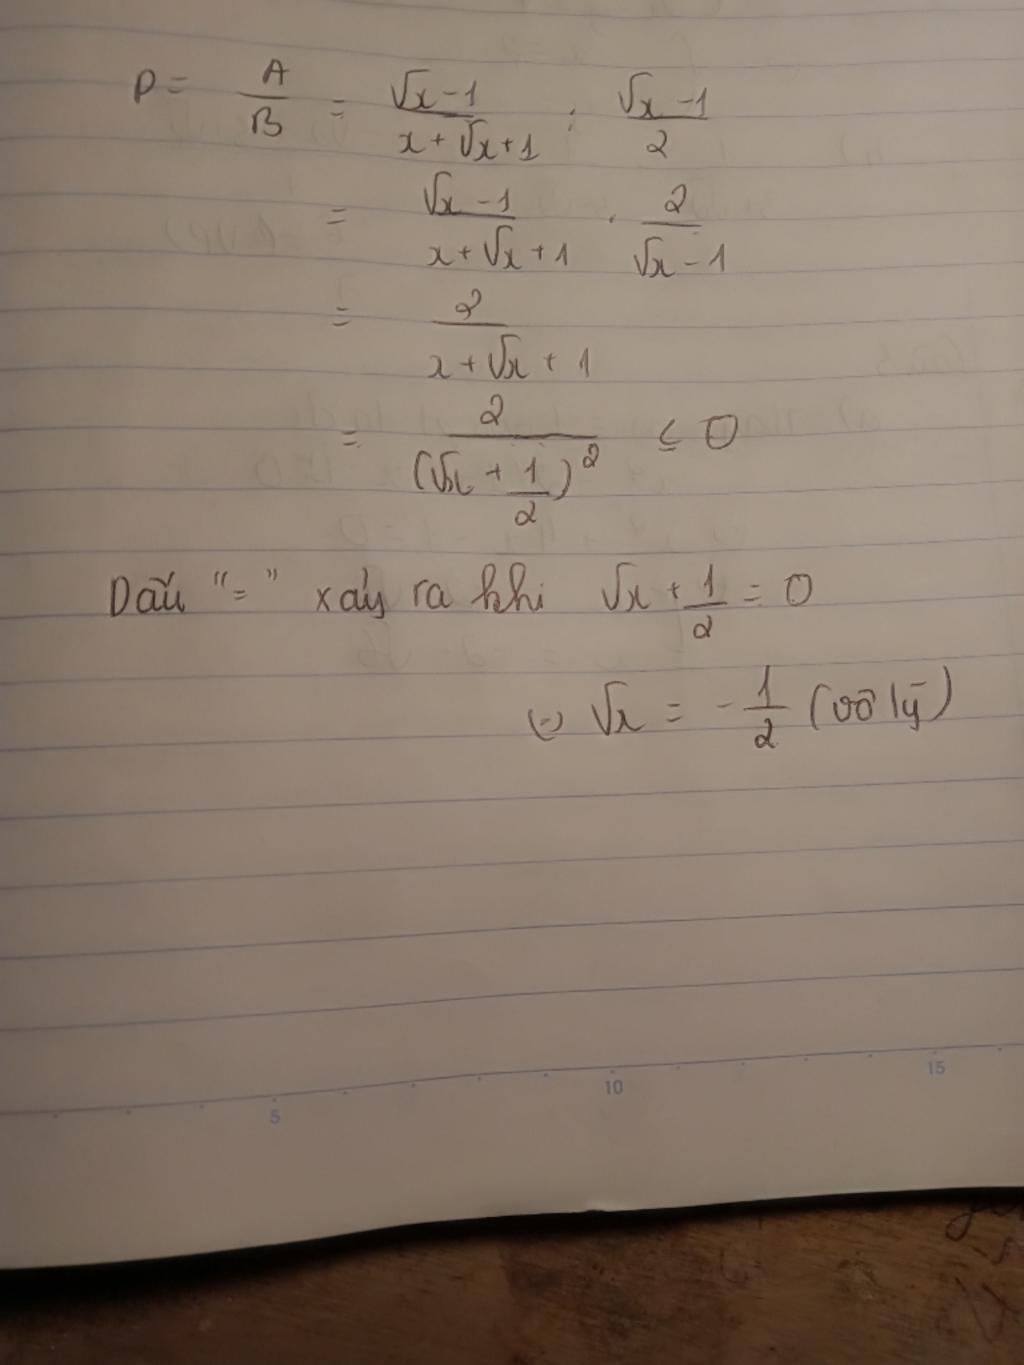 P = A/B = (√x - 1)/(x + √x + 1) : (√x - 1)/2
= (√x - 1)/(x + √x + 1) . 2/(√x - 1)
= 2/(x + √x + 1)
= 2/(√x + 1/2)² ≤ 0
Dấu "=" xảy ra khi √x + 1/2 = 0
(=) √x = - 1/2 (vô lý)
5 10 15